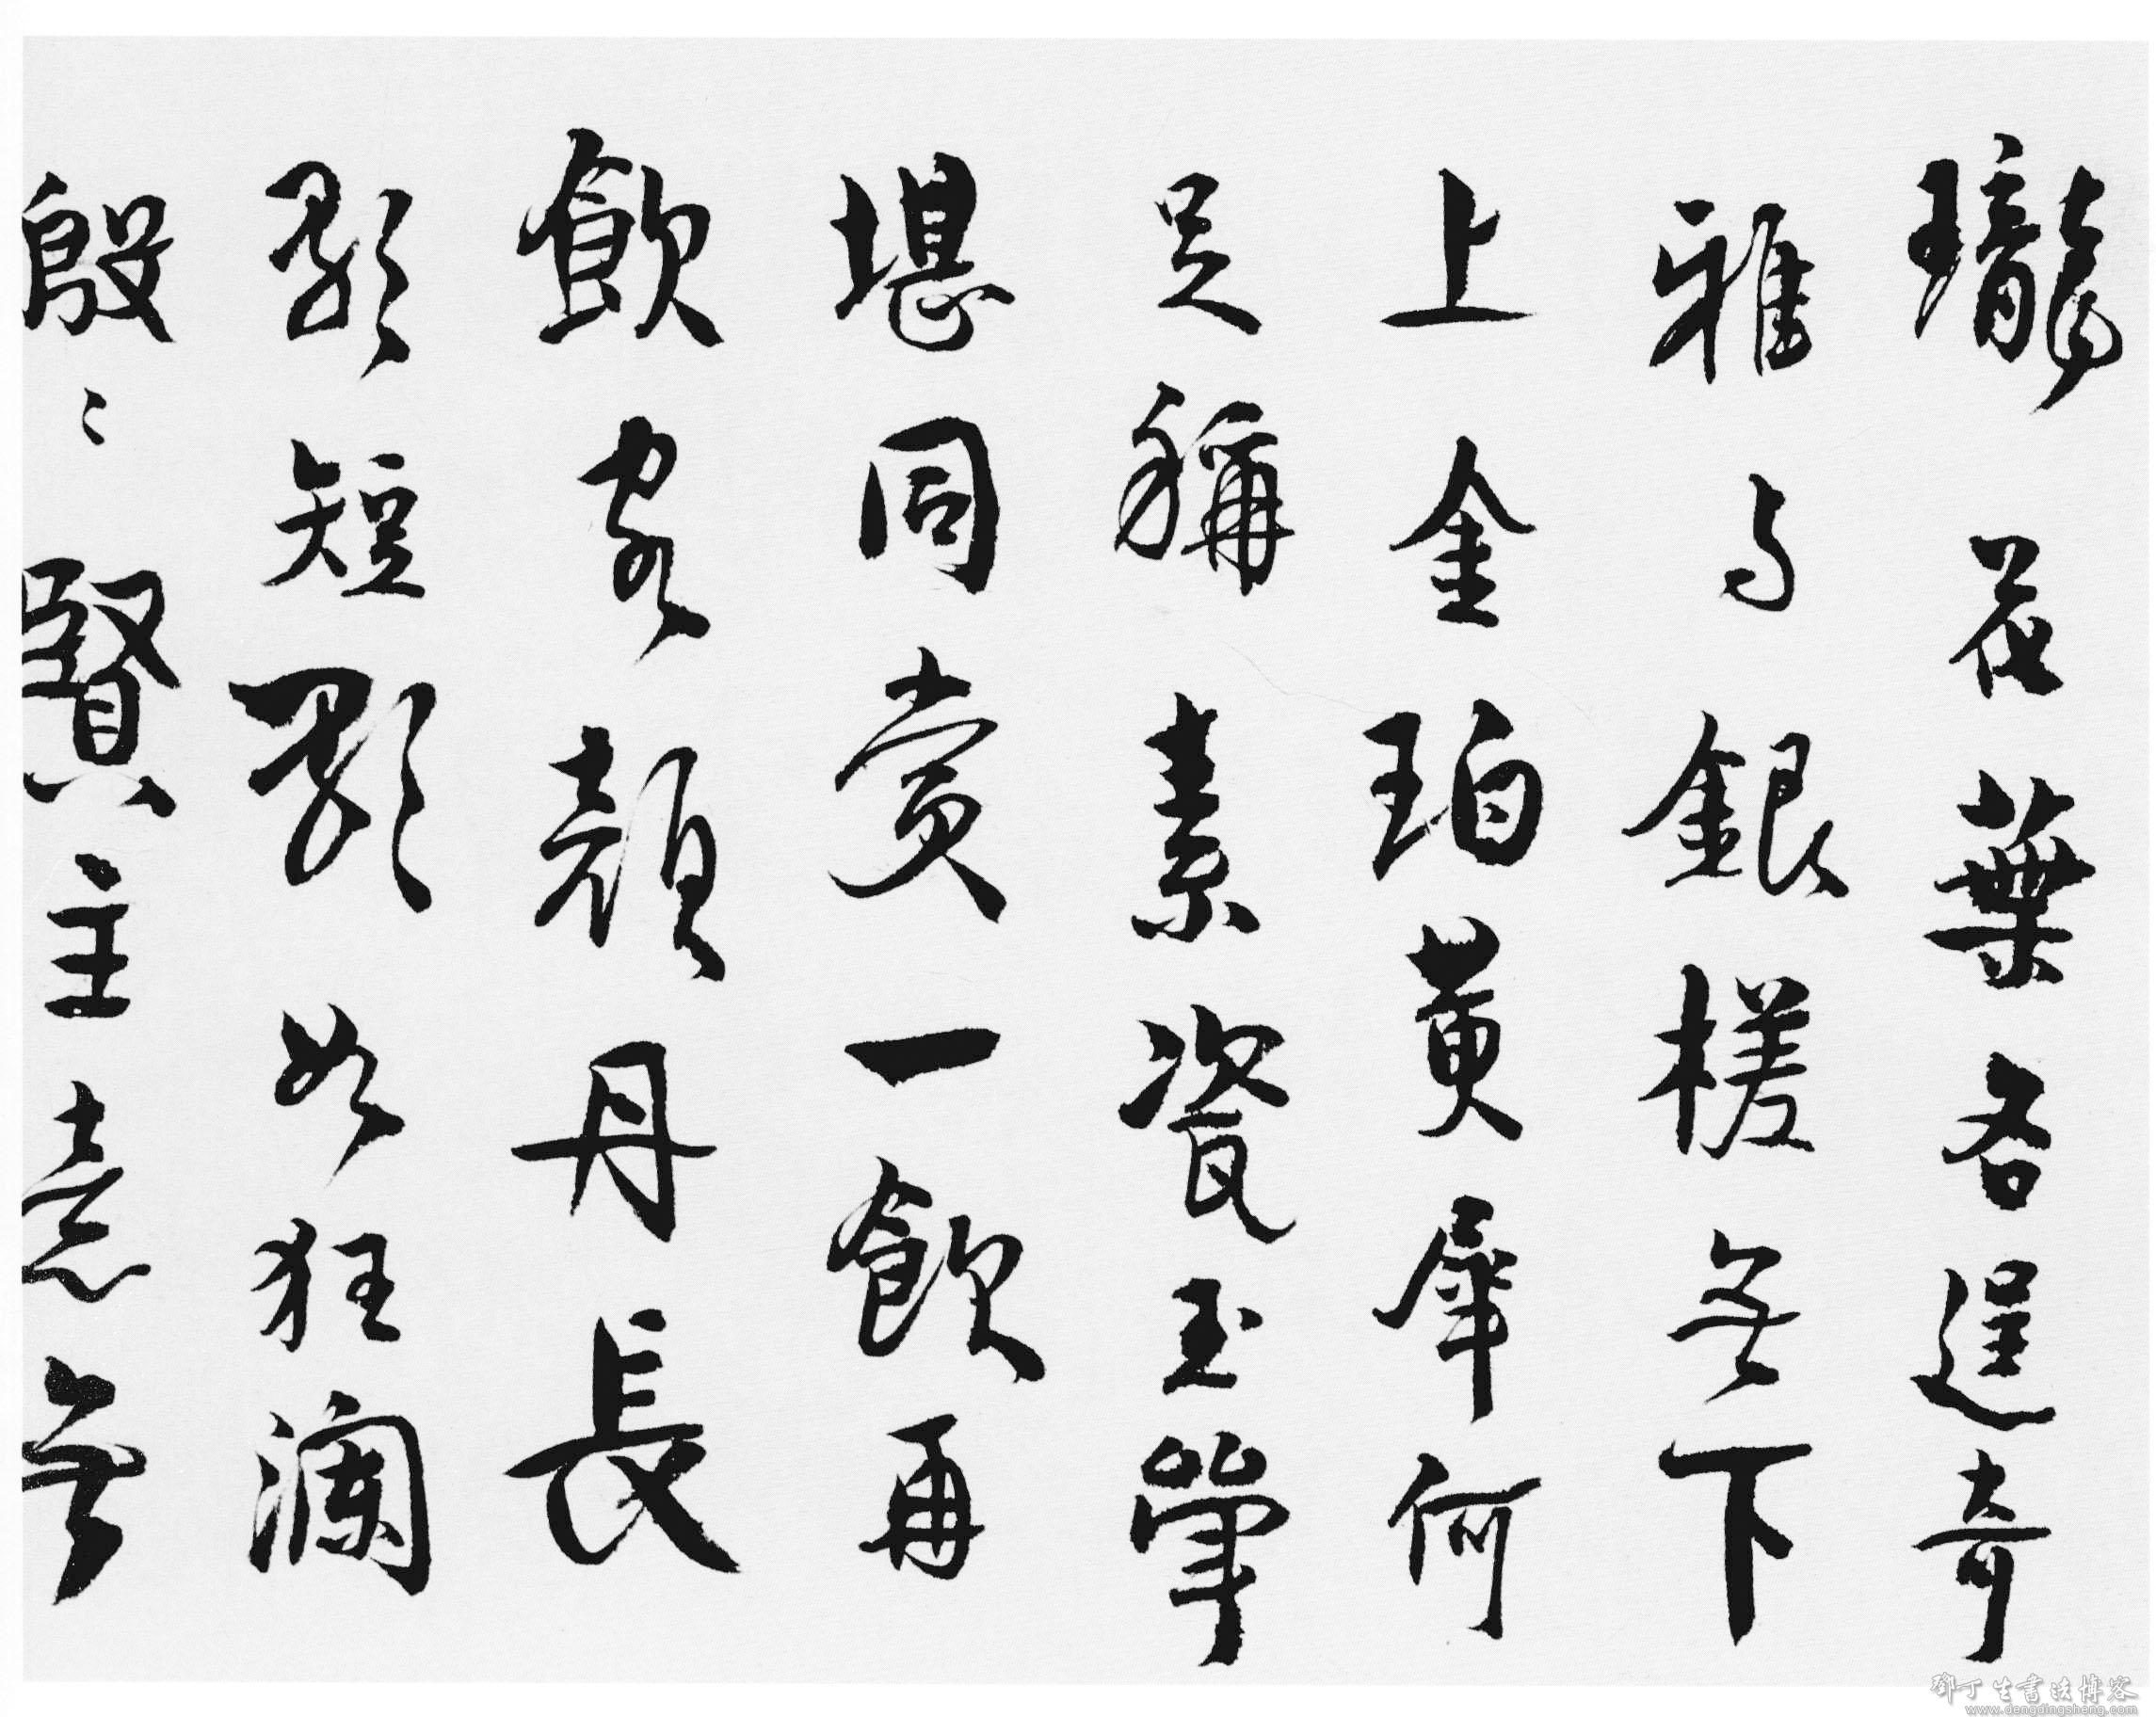 瓏花葉各逞奇
雅与銀槎無下
上金珀黄犀何
足稱素瓷玉
堪同賞一飲再
飲客顏丹長
歌短歌如狂瀾
殷〻賢主意無
鄧丁生書法博客
www.dengdingsheng.com